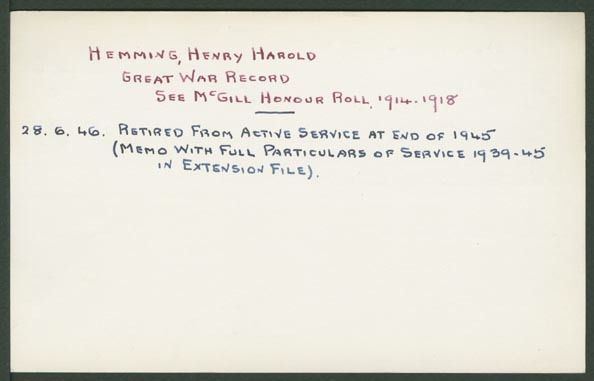 HEMMING, HENRY HAROLD
GREAT WAR RECORD
SEE McGILL HONOUR ROLL, 1914-1918
28.6.46. RETIRED FROM ACTIVE SERVICE AT END OF 1945
(MEMO WITH FULL PARTICULARS OF SERVICE 1939-45
IN EXTENSION FILE).